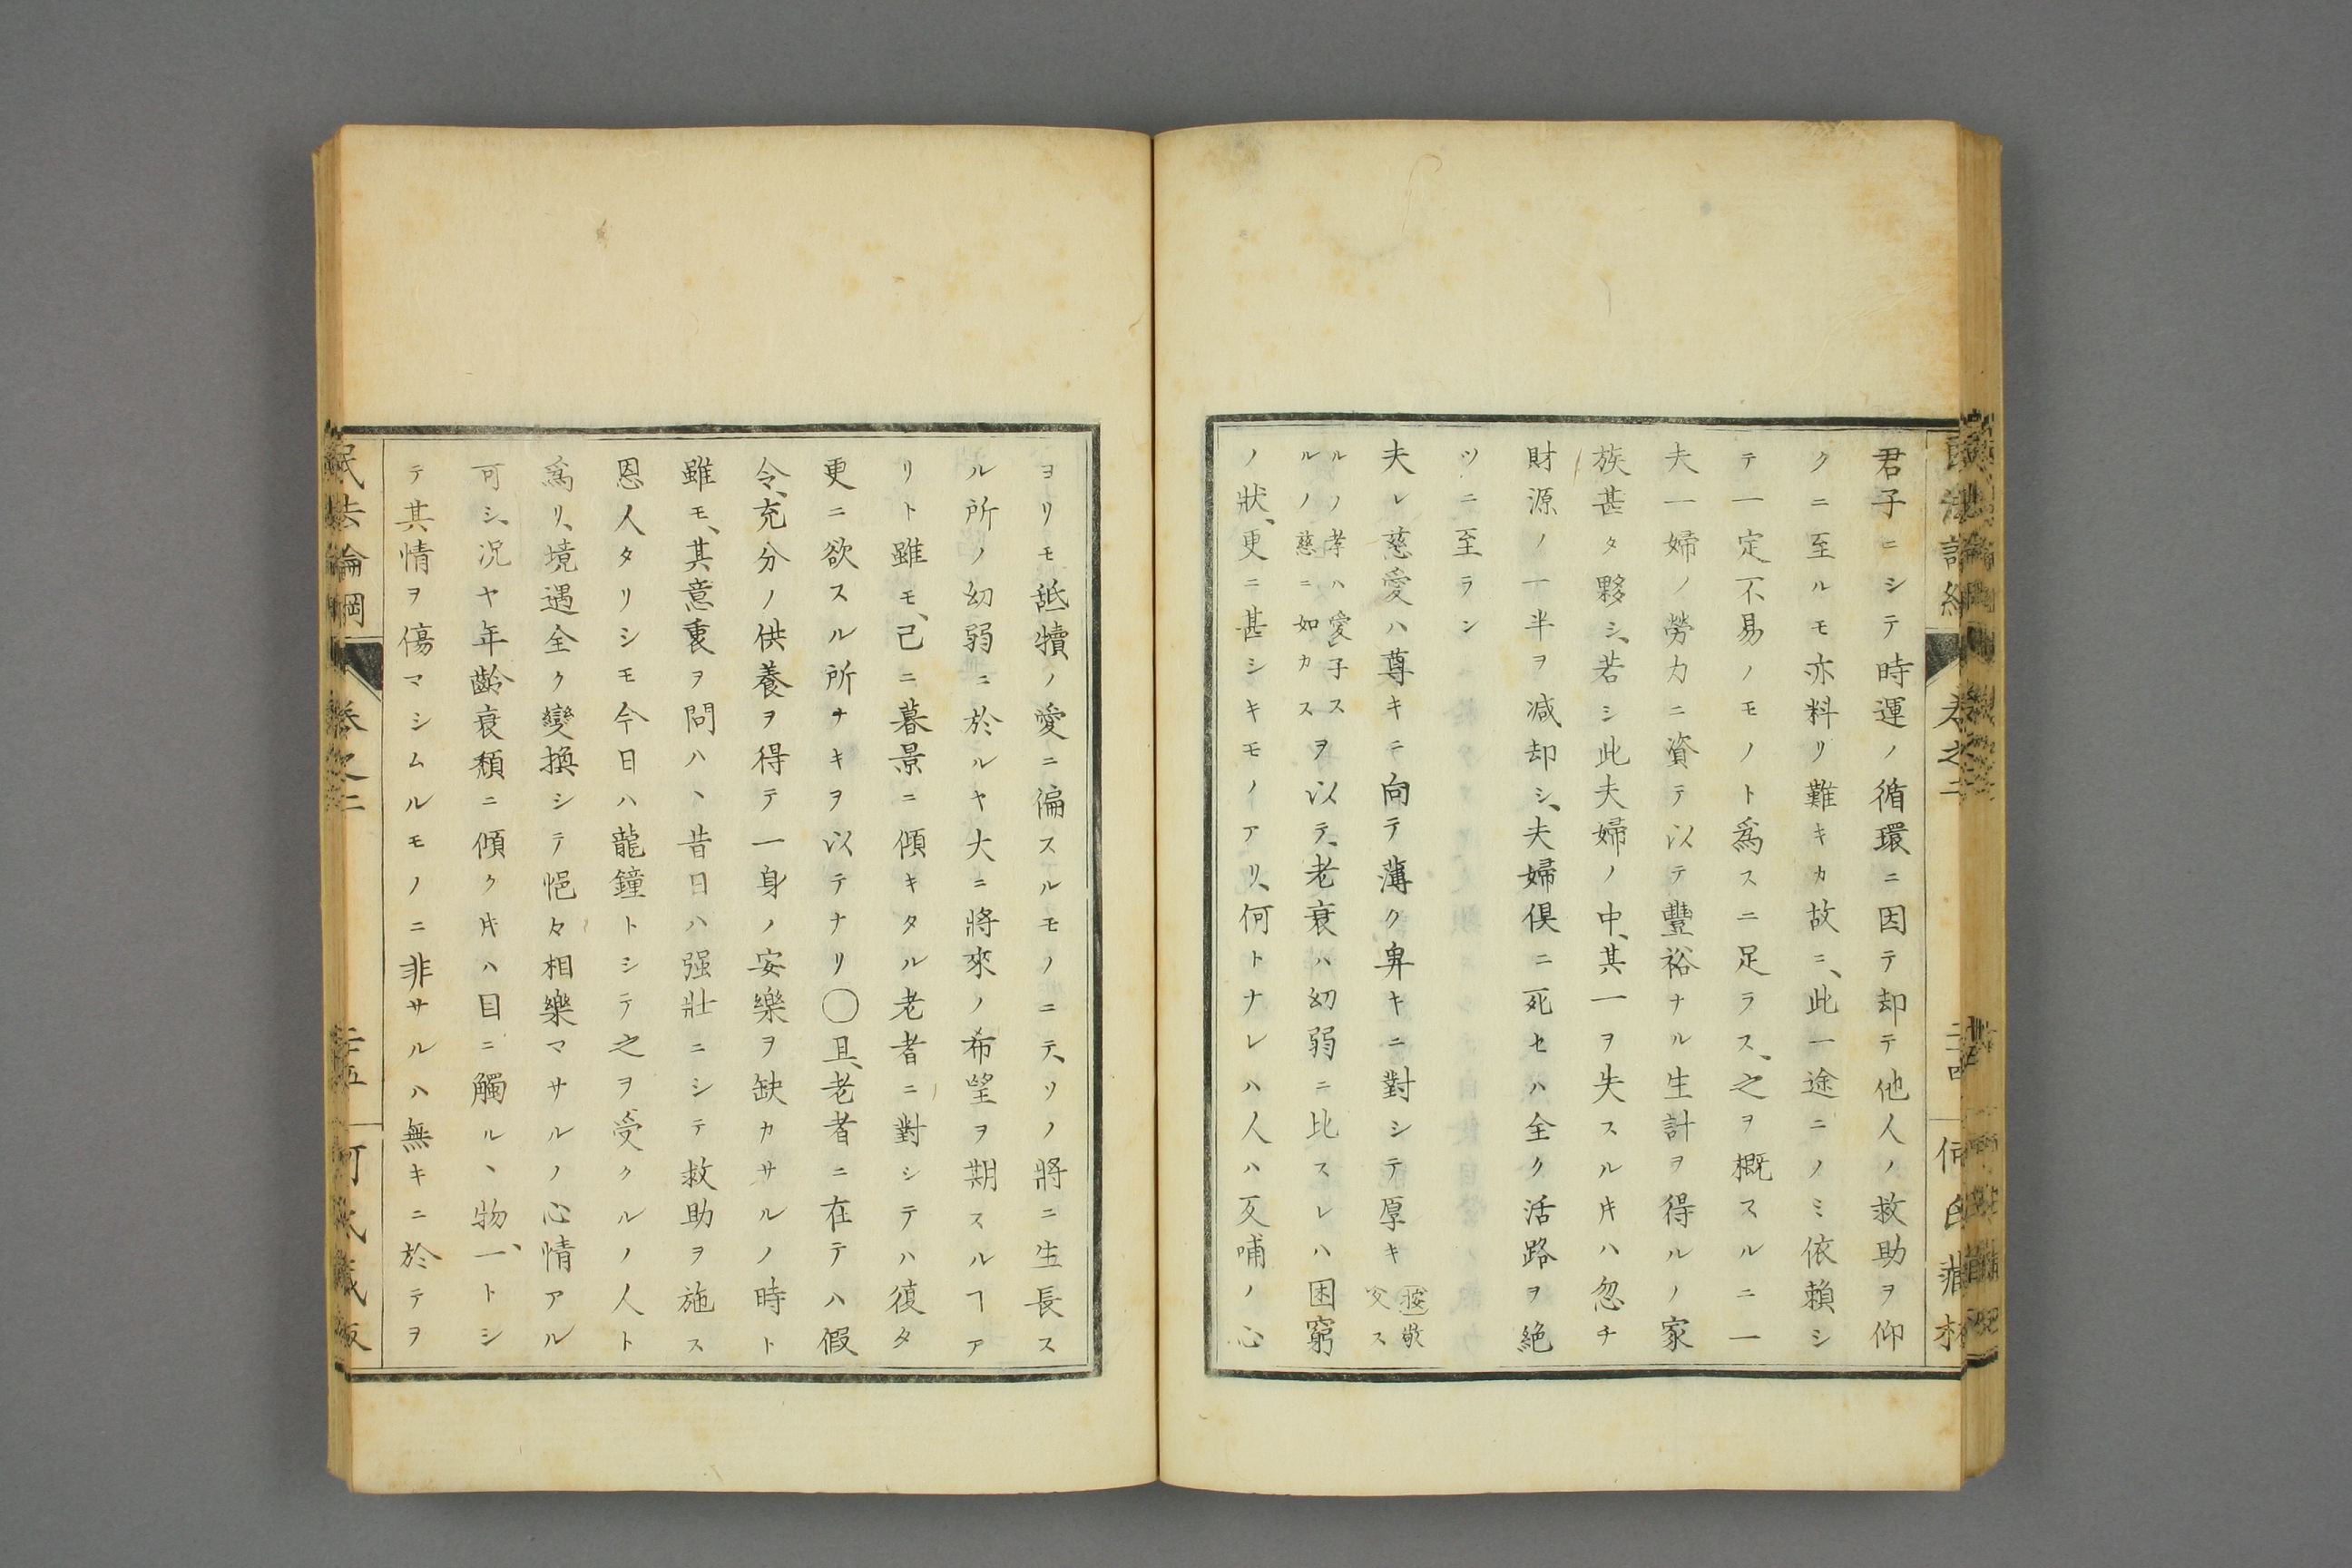 君子ニシテ時運ノ循環ニ因テ却テ他人ノ救助ヲ仰
クニ至ルモ亦料リ難キカ故ニ、此一途ニノミ依賴シ
テ一定不易ノモノト爲スニ足ラス、之ヲ概スルニ一
夫一婦ノ勞力ニ資テ以テ豐裕ナル生計ヲ得ルノ家
族甚タ夥シ、若シ此夫婦ノ中、其一ヲ失スルキハ忽チ
財源ノ一半ヲ減却シ、夫婦俱ニ死セハ全ク活路ヲ絶
ツニ至ラン
夫レ慈愛ハ尊キニ向テ薄ク卑キニ對シテ厚キ
按敬
父ス
ルノ孝ハ愛子ス
ルノ慈ニ如カス
ヲ以テ、老衰ハ幼弱ニ比スレハ困窮
ノ狀、更ニ甚シキモノアリ、何トナレハ人ハ反哺ノ心
ヨリモ舐犢ノ愛ニ偏スルモノニテ、ソノ將ニ生長ス
ル所ノ幼弱ニ於ルヤ大ニ將來ノ希望ヲ期スルヿア
リト雖モ、己ニ暮景ニ傾キタル老者ニ對シテハ復タ
更ニ欲スル所ナキヲ以テナリ〇且、老者ニ在テハ假
令、充分ノ供養ヲ得テ一身ノ安樂ヲ缺カサルノ時ト
雖モ、其意裏ヲ問ハヽ昔日ハ强壯ニシテ救助ヲ施ス
恩人タリシモ今日ハ龍鐘トシテ之ヲ受クルノ人ト
爲リ、境遇全ク變換シテ悒々相樂マサルノ心情アル
可シ、況ヤ年齡衰頽ニ傾クキハ目ニ觸ルヽ物、一トシ
テ其情ヲ傷マシムルモノニ非サルハ無キニ於テヲ
民法論綱
卷之二
二十五
何求藏版